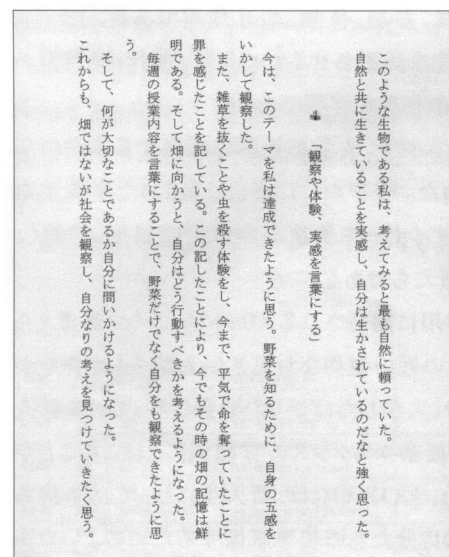 このような生物である私は、考えてみると最も自然に頼っていた。
自然と共に生きていることを実感し、自分は生かされているのだなと強く思った。
「観察や体験、実感を言葉にする」
今は、このテーマを私は達成できたように思う。野菜を知るために、自身の五感を
いかして観察した。
また、雑草を抜くことや虫を殺す体験をし、今まで、平気で命を奪っていたことに
罪を感じたことを記している。この記したことにより、今でもその時の畑の記憶は鮮
明である。そして畑に向かうと、自分はどう行動すべきかを考えるようになった。
毎週の授業内容を言葉にすることで、野菜だけでなく自分をも観察できたように思
う。
そして、何が大切なことであるか自分に問いかけるようになった。
これからも、畑ではないが社会を観察し、自分なりの考えを見つけていきたく思う。